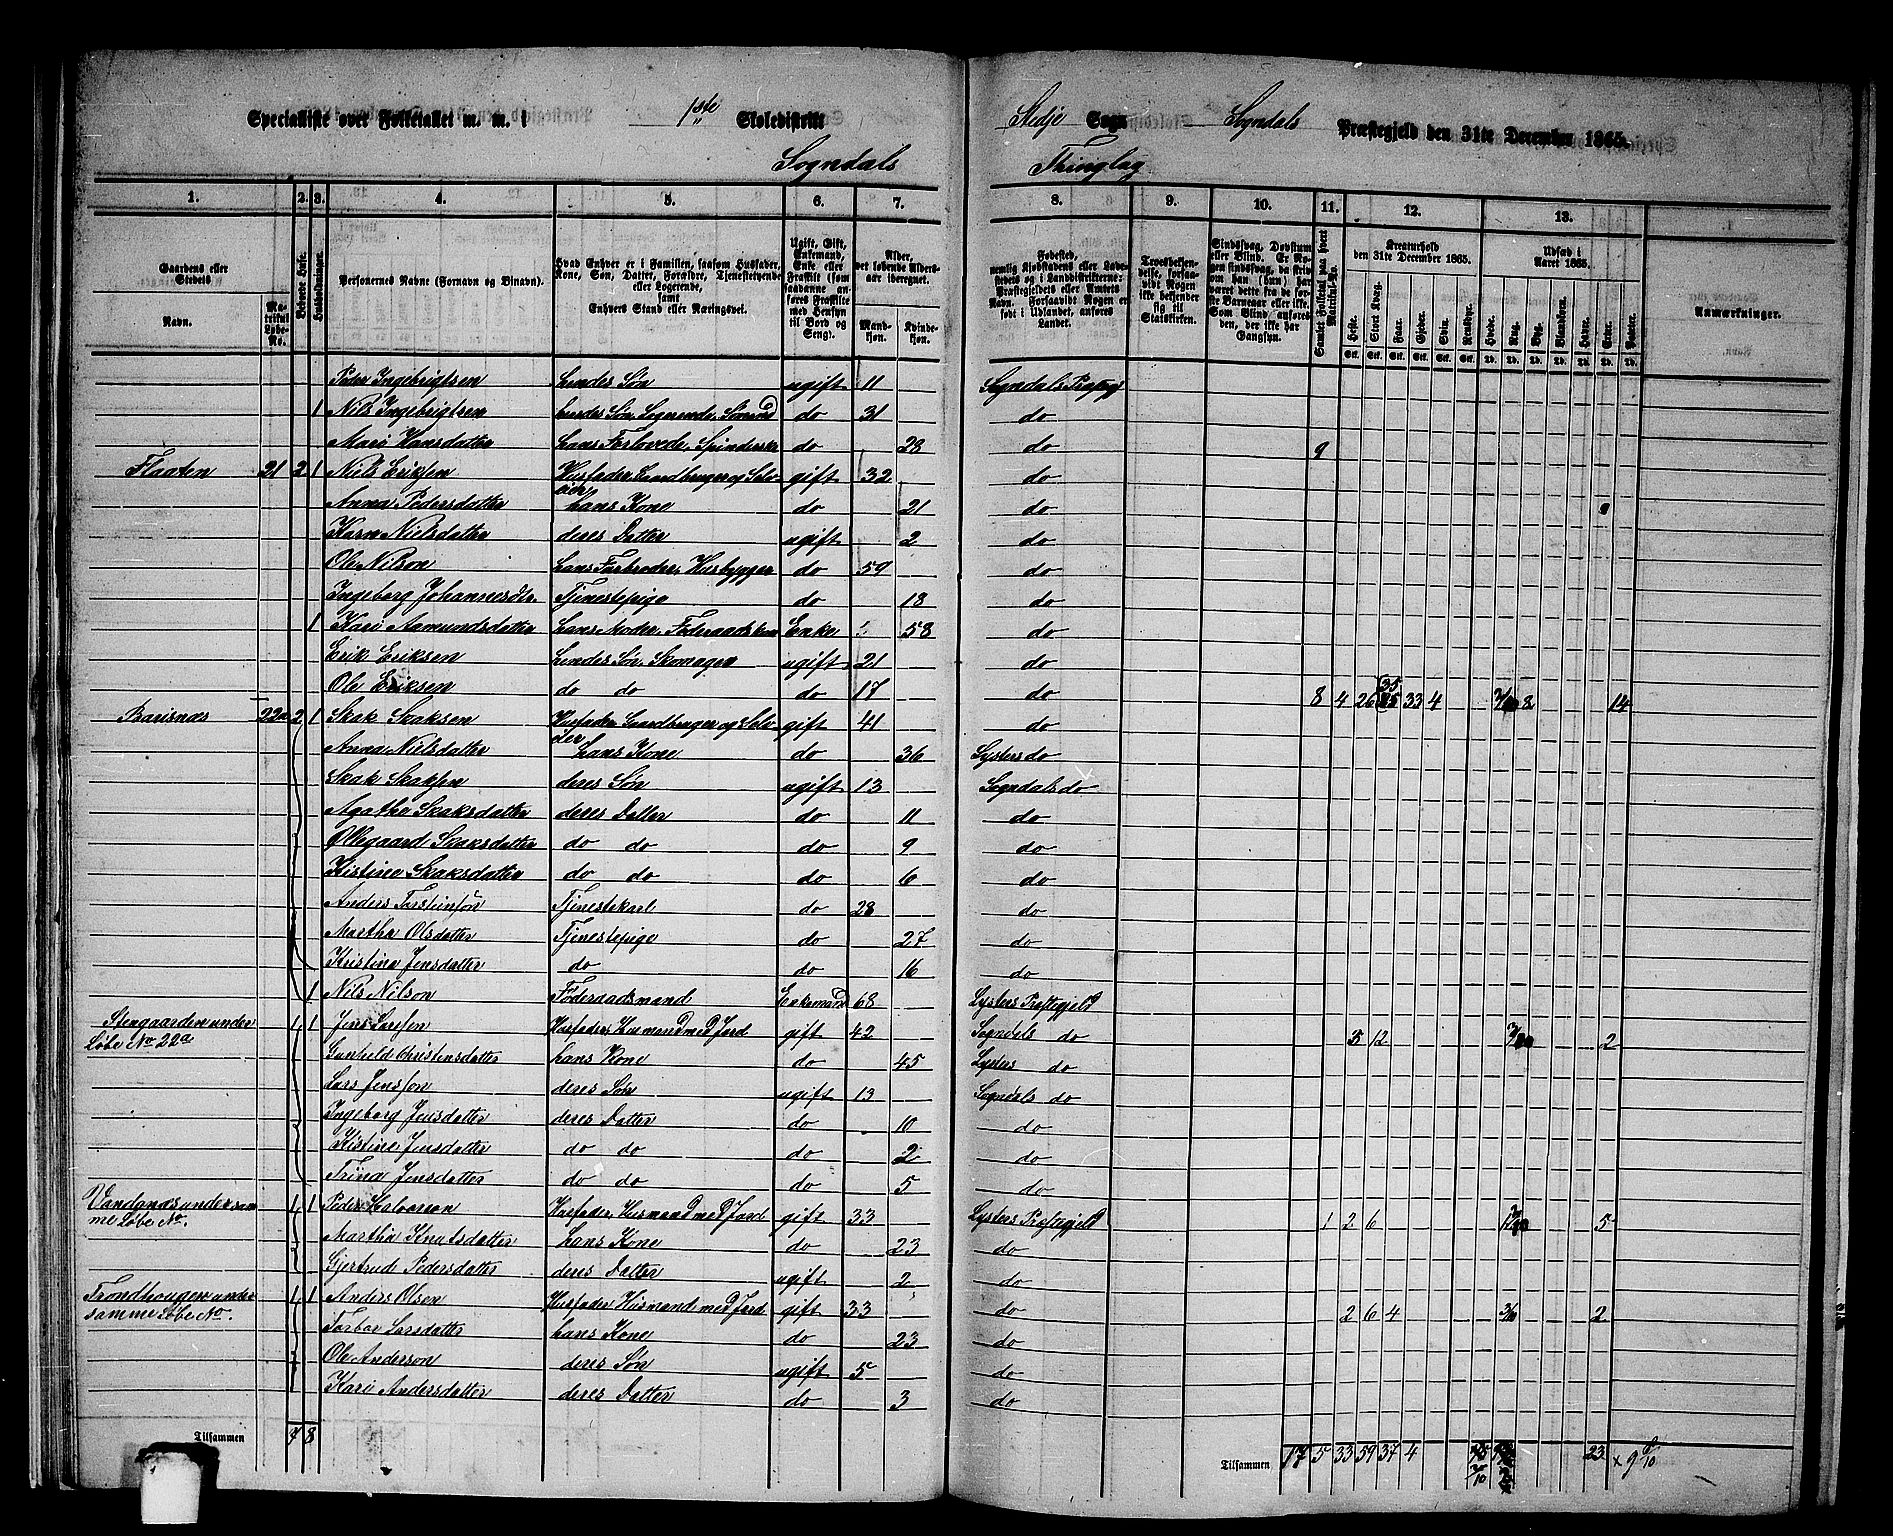 Specialliste over Folketallet m. m. i 1ste Skoledistrikt Stedje Sogn Sogndals Præstegjeld den 31te December 1865.
Sogndals Thinglag
1. 2. 3. 4. 5. 6. 7. 8. 9. 10. 11. 12. 13.
Gaardens eller Stedets Navn. Matrikul Løbe-No. Beboede Huse. Husholdninger. Personernes Navne (Fornavn og Tilnavn). Hvad Enhver er i Familien, saasom Husfader, Kone, Søn, Datter, Forældre, Tjenestetyende eller Logerende, samt Enhvers Stand eller Næringsvei. Alder, det løbende Alders-aar iberegnet. Mandkjøn. Kvindekjøn. Kreaturhold den 31te December 1865. Udsæd i Aaret 1865. Anmærkninger.
Peder Ingebrigtsen hendes Søn ugift 11 Sogndals Præstegj
1 Nils Ingebrigtsen hendes Søn Logerende, Sømand do 31 do
Mari Hansdatter hans Forlovede, Spinderske do 28 do 9
Flaaten 21 2 1 Niels Eriksen Husfader Gaardbruger og Selveier gift 32 do
Anna Pedersdatter hans Kone do 21 do
Karn Nielsdatter deres Datter ugift 2 do
Ole Nilson hans Farbroder, Husbygger do 59 do
Ingeborg Johannesdtr Tjenestepige do 18 do
1 Kari Aamundsdatter hans Moder, Føderaadskone Enke 58 do
Erik Eriksen hendes Søn, Skomager ugift 21 do
Ole Eriksen do do do 17 do 8 4 26 35 33 4 8 14
Barsnæs 22a 2 1 Skak Skaksen Husfader Gaardbruger og Selveier gift 41 do
Anna Nielsdatter hans Kone do 36 Lysters do
Skak Skaksen deres Søn ugift 13 Sogndals do
Agatha Skaksdatter deres Datter do 11 do
Ollegaard Skaksdatter do do do 9 do
Kistine Skaksdatter do do do 6 do
Anders Torsteinsøn Tjenestekarl do 28 do
Martha Olsdatter Tjenestepige do 27 do
Kristina Jensdatter do do 16 do
1 Nils Nilson Føderaadsmand Enkemand 68 Lysters Præstegjeld
Stengaarden under 1 1 Jens Larssen Husfader, Husmand med Jord gift 42 Sogndals do 5 12 2
Løbe No 22a
Gunheld Christensdatter hans Kone do 45 Lysters do
Lars Jenssen deres Søn ugift 13 Sogndals do
Ingeborg Jensdatter deres Datter do 10 do
Kistine Jensdatter do do do 2 do
Trina Jensdatter do do do 5 do
Vandnæs under sam- 1 1 Peder Halvorson Husfader, Husmand med Jord gift 33 Lysters Præstegjeld 1 2 6 5
me Løbe No.
Martha Knutsdatter hans Kone do 23 do
Gjertrud Pedersdatter deres Datter ugift 2 do
Trondhougen under 1 1 Anders Olsen Husfader Husmand med Jord gift 33 do 2 6 4 2
samme Løbe No.
Torbor Larsdatter hans Kone do 23 do
Ole Anderson deres Søn ugift 5 do
Kari Andersdatter deres Datter do 3 do
Tilsammen 7 8 Tilsammen 17 5 33 59 37 4 23